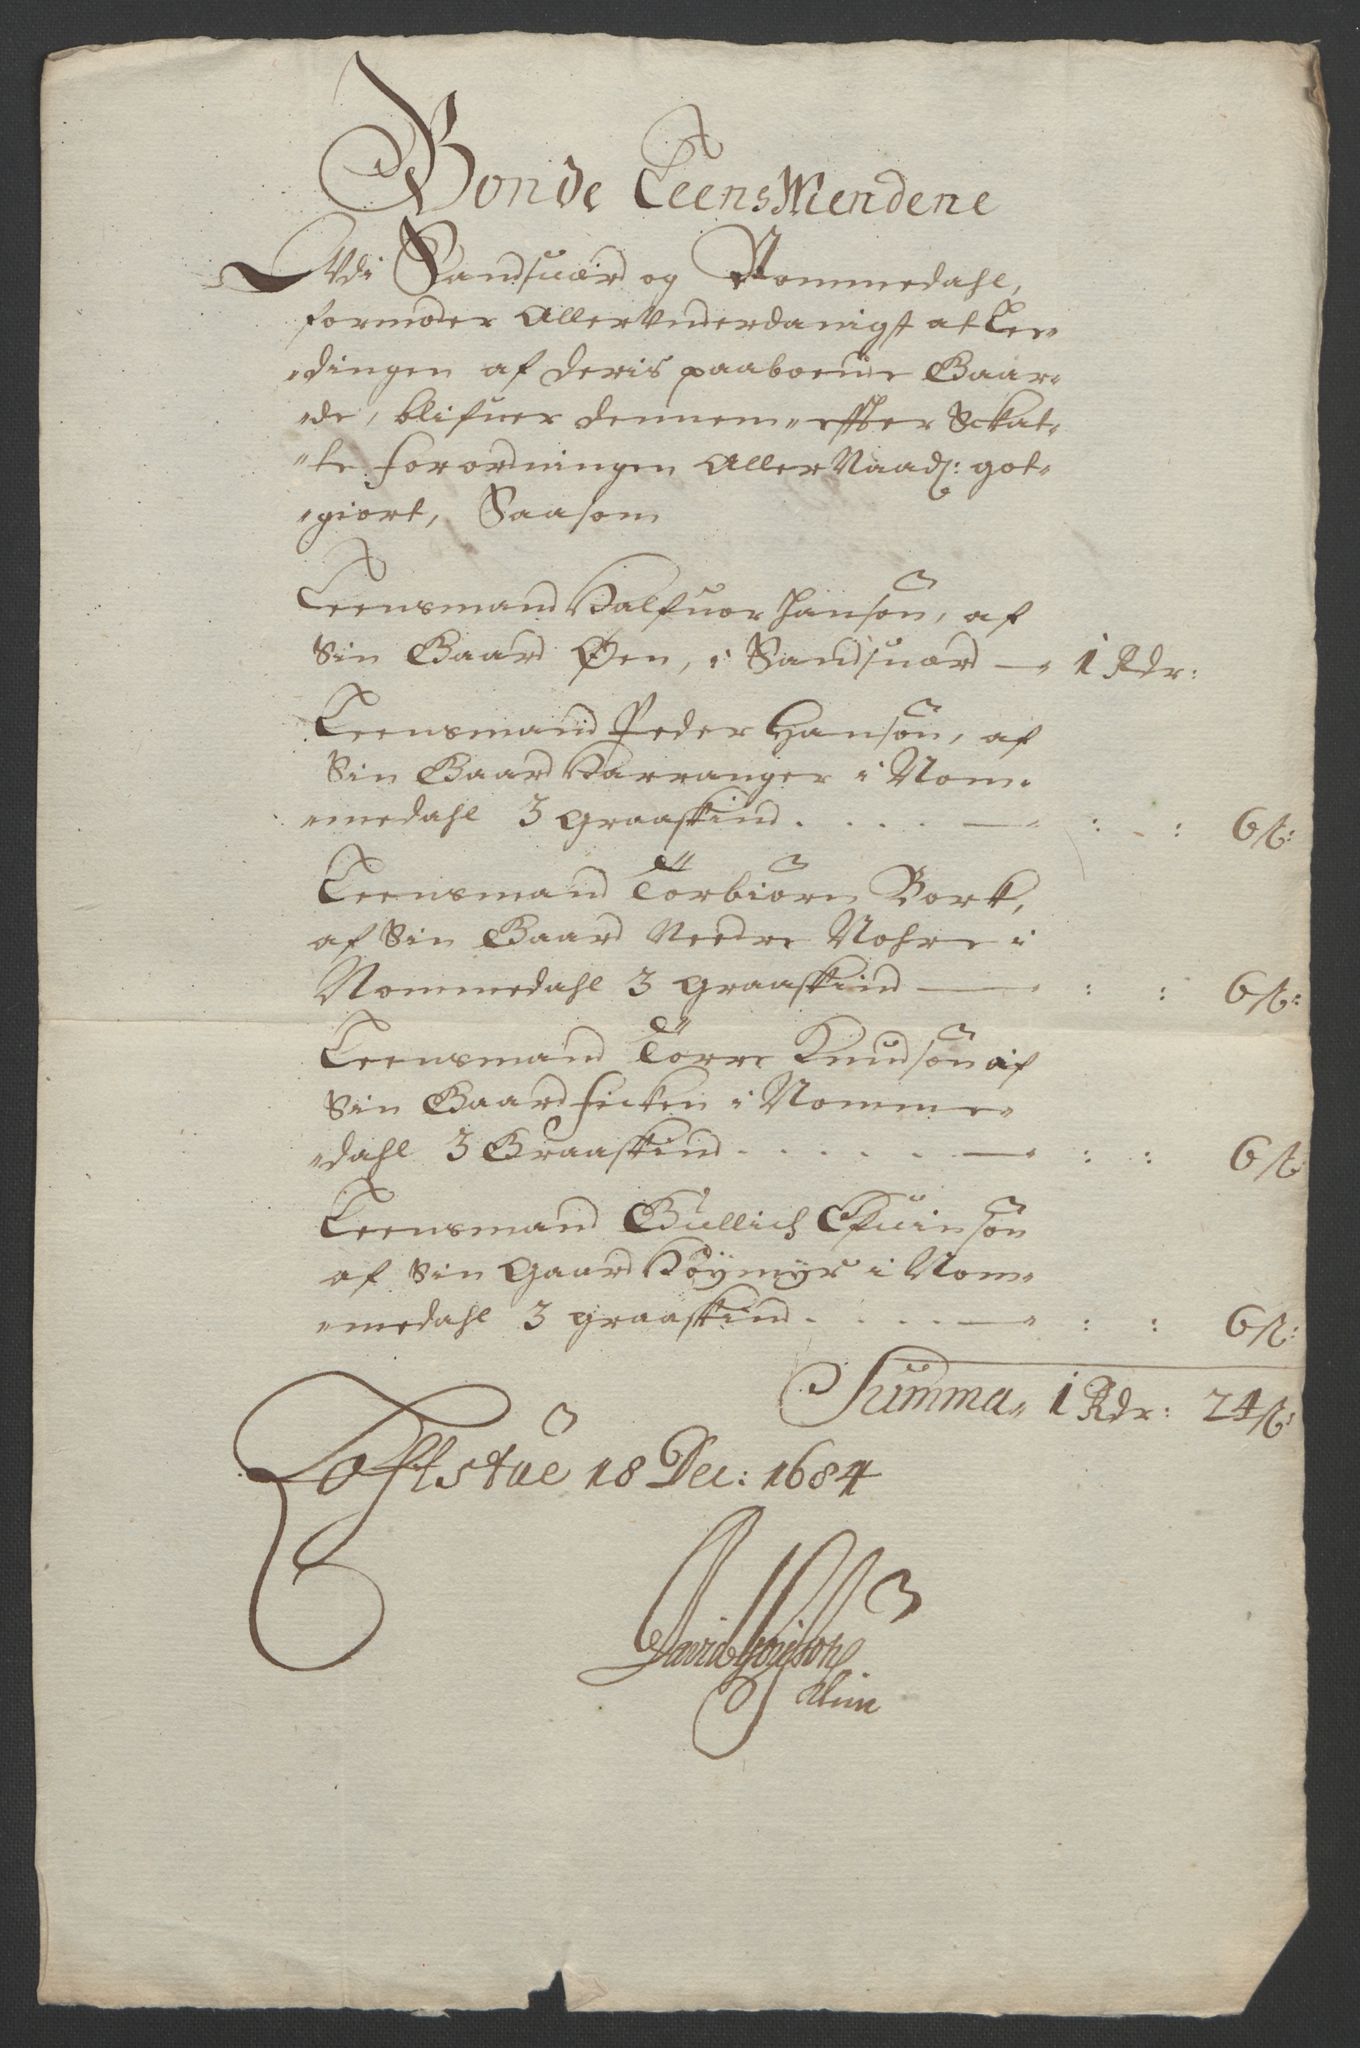 Bonde LeensMendene
Udi Sandsuærd og Nommedahl,
formoder AllerUnderdanigst at Lee-
-dingen af deris paaboende Gaar-
-de, blifuer dennem effter Sckat-
-te forordningen AllerNaad: got-
-giort, Saasom
Leensmand Halfuor Hansøn, af
Sin Gaard Øen, i Sandsuærd - 1 Rdr:
Leensmand Peder Hansøn, af
Sin Gaard Karranger i Nom-
-medahl 3 graaskind . . . . - : : 6 ß:
Leensmand Torbiørn Bork,
af Sin Gaard Needre Nohre i
Nommedahl 3 graaskind - : : 6 ß:
Leensmand Torre Knudsøn af
Sin Gaard Ficken i Nomme-
-dahl 3 Graaskind . . . . . - : : 6 ß
Leensmand Gullich Efuinsøn
af Sin Gaard Høymyr i Nom-
-medahl 3 graaskind . . . . - : : 6 ß:
Summa- 1 Rdr: 24 ß:
Loftstue 18 Dec: 1684
David